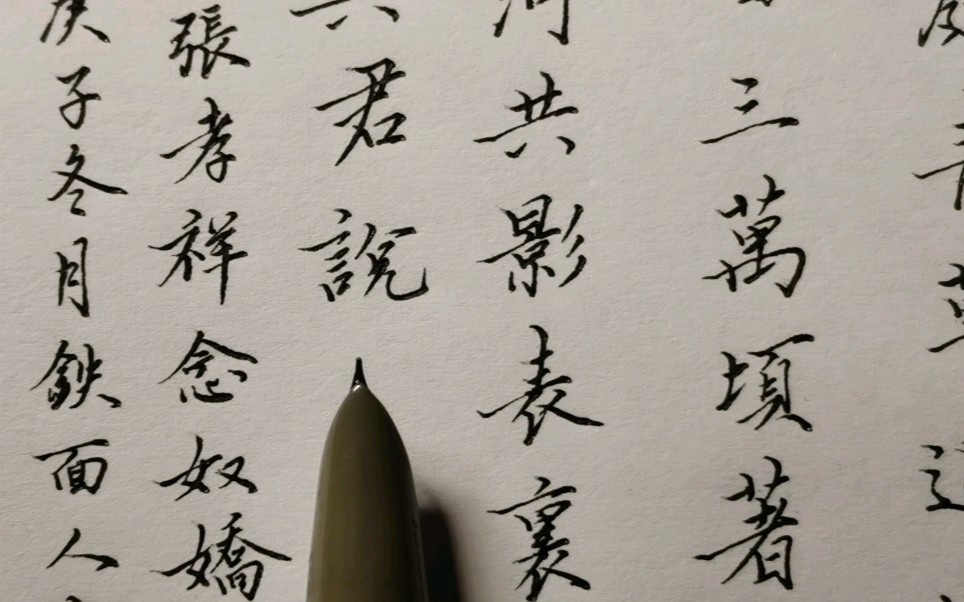 青草
三萬頃著
河共影表裏
君說
張孝祥念奴嬌
庚子冬月鉄面人